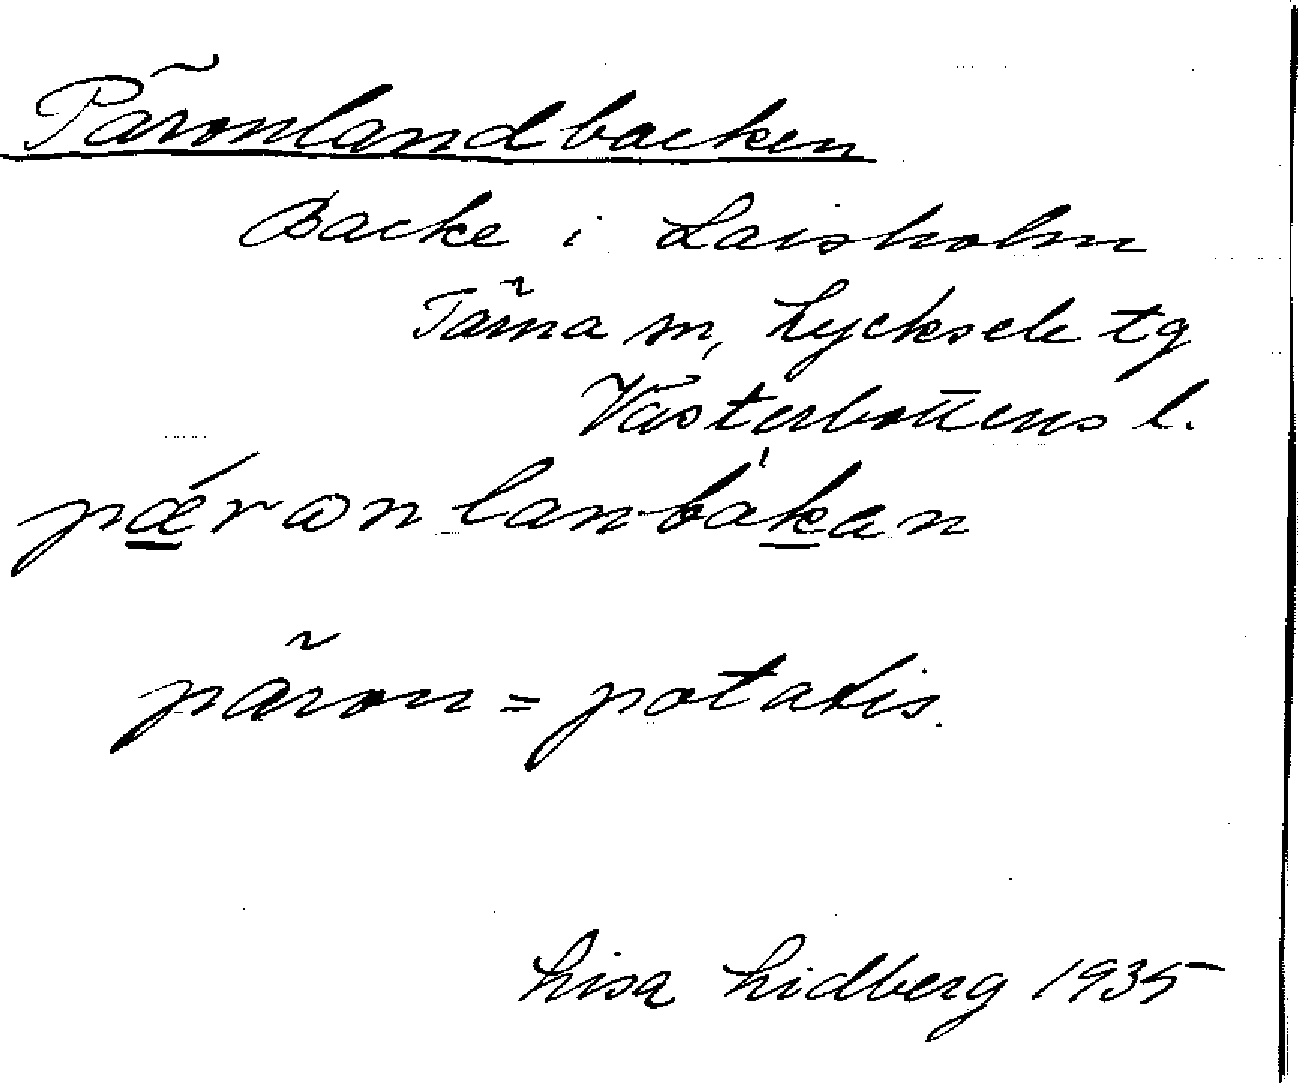 Päronlandbacken
Backe i Laisholm
Tärna sn, Lycksele tg
Västerbottens l.
pǽronlanbakan
päron = potatis.
Lisa Lidberg 1935